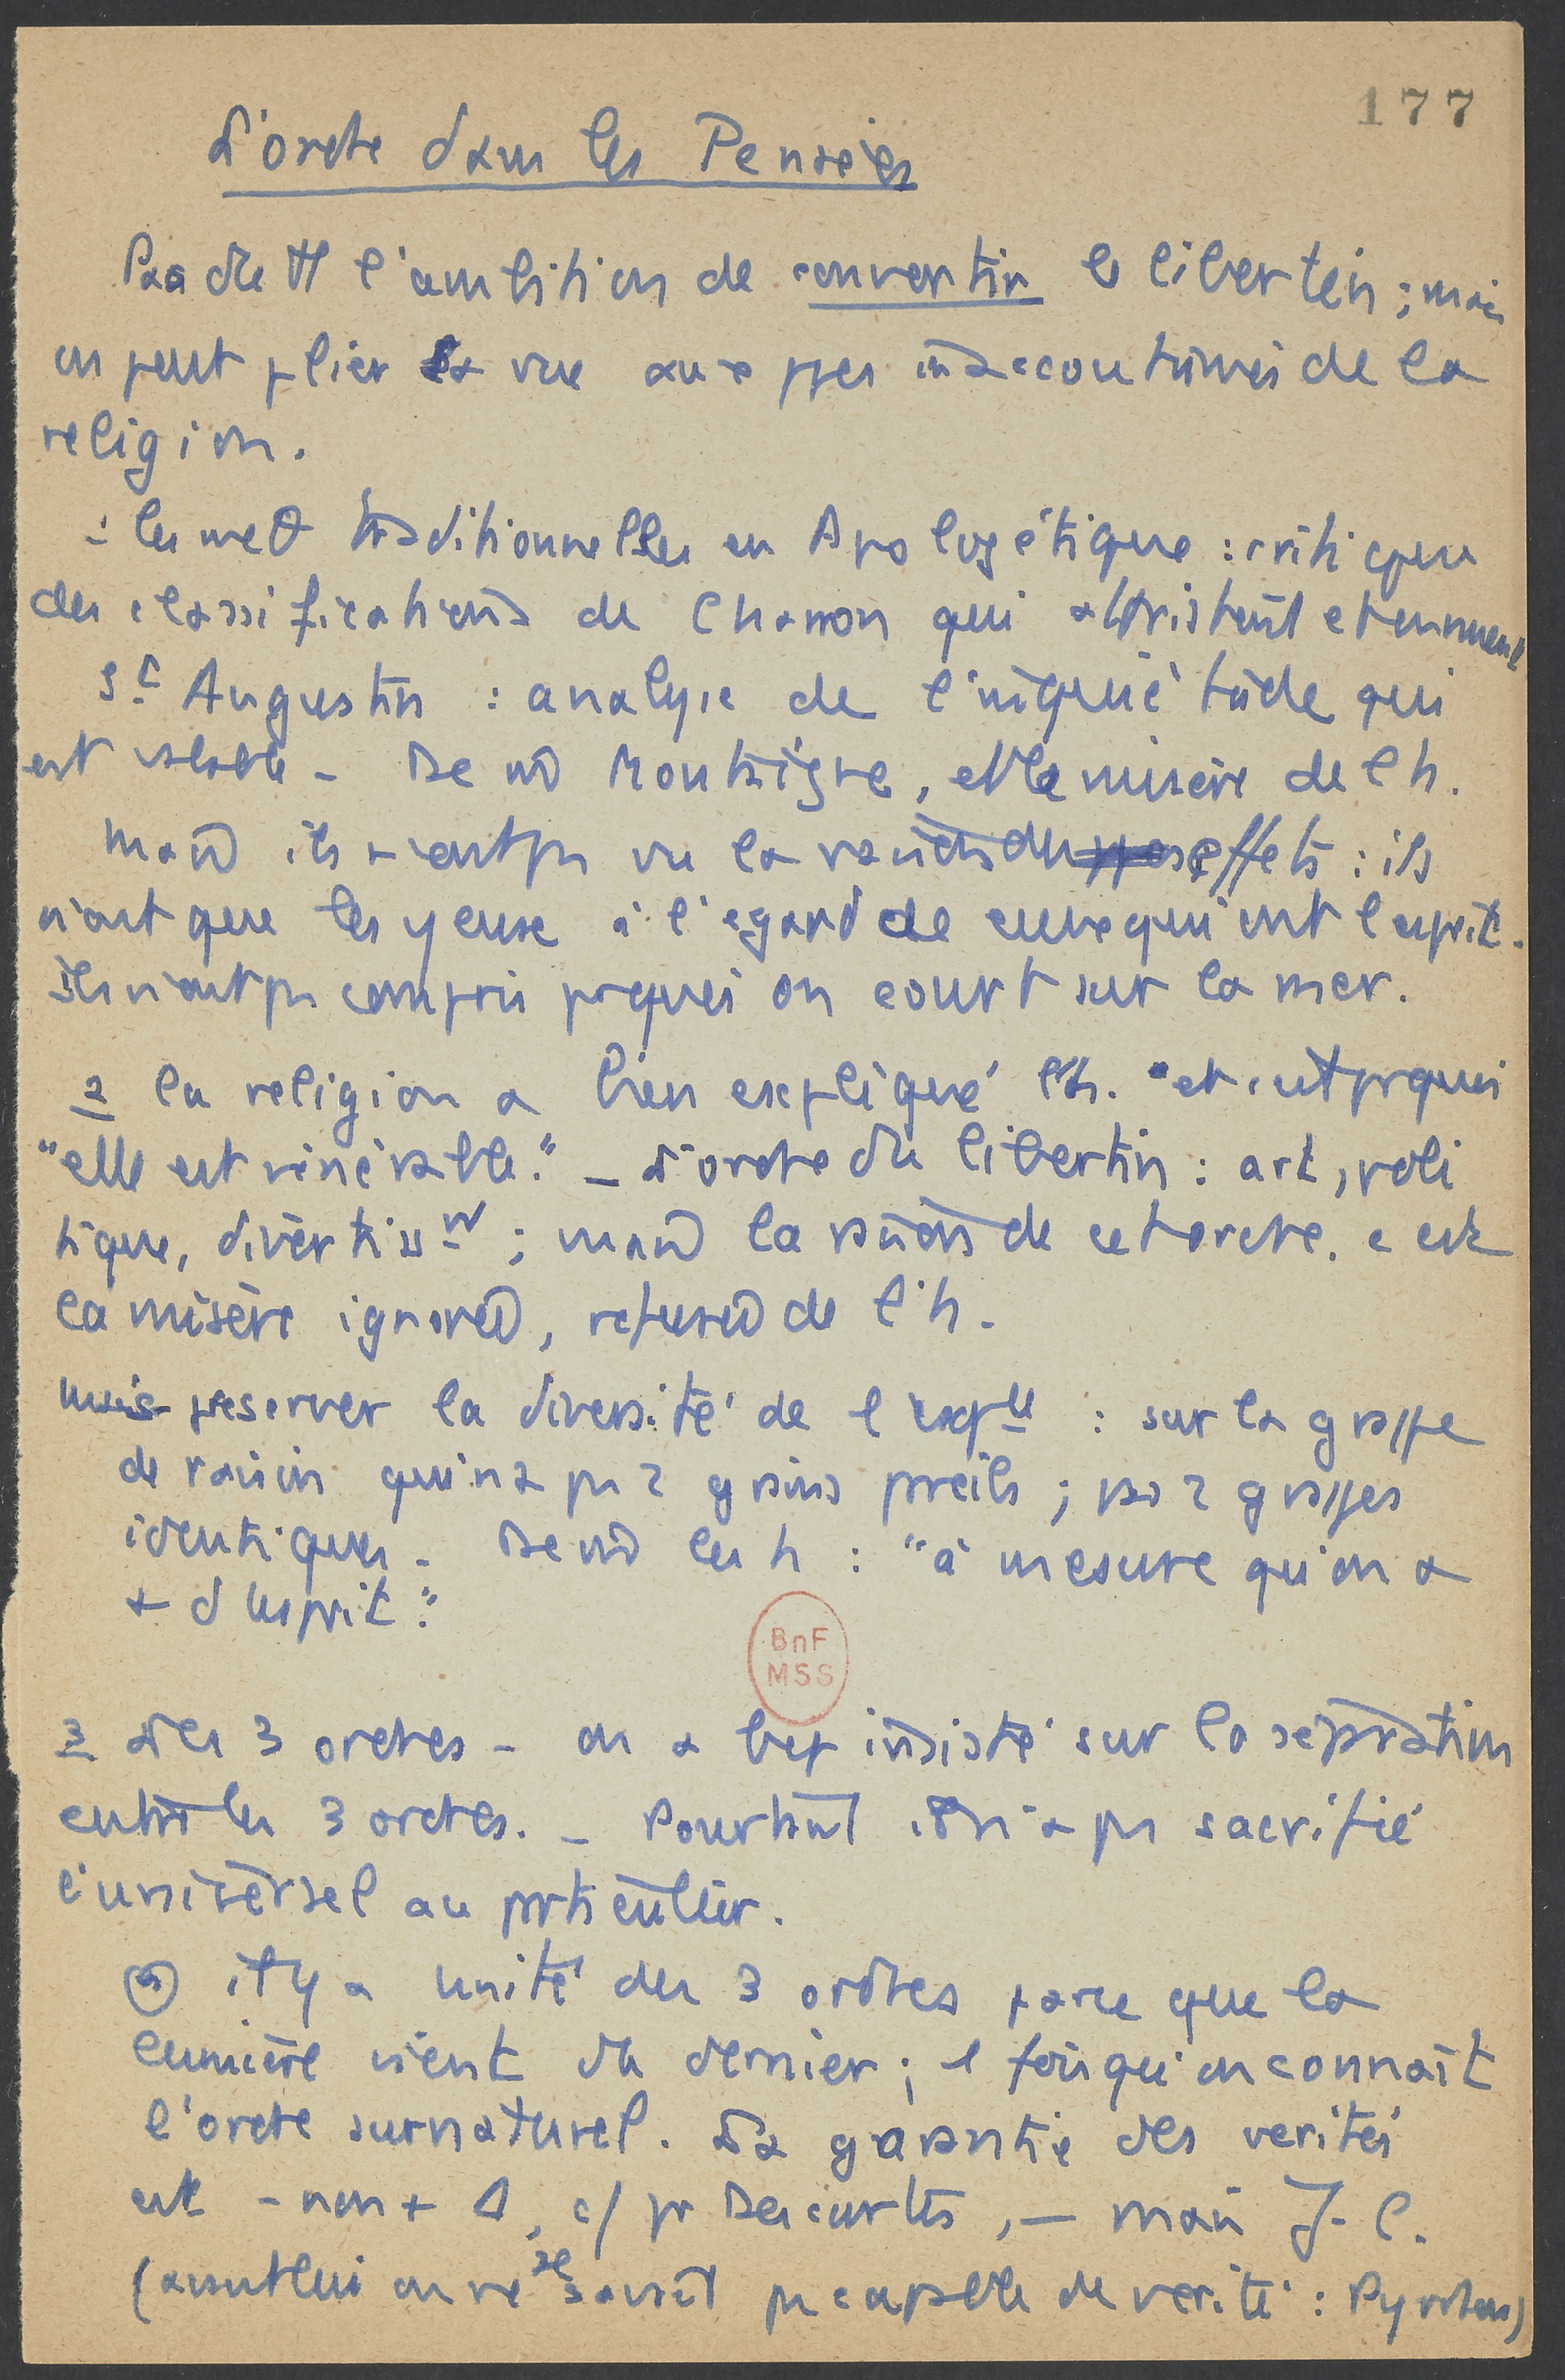 177
L'ordre dans les Pensées
Pas de tt l'ambition de convertir le libertin ; mais
on peut plier sa vue aux ppes inaccoutumés de la
religion.
1 les met θ traditionnelles en Apologétique : critique
des classifications de Charron qui attristent et ennuient
St Augustin : analyse de l'inquiétude qui
est valable - De m̂ Montaigne, et la misère de l h.
Mais ils n'ont ps vu la raison des effets : ils
n'ont que les yeux à l'égard de ceux qui ont l'esprit.
Ils n'ont ps compris pquoi on court sur la mer.
2 la religion a bien expliqué l'h. "et c'est pquoi
"elle est vénérable." - L'ordre du libertin : art, poli
tique, divertisst ; mais la raison de cet ordre. c'est
la misère ignorée, refusée de l'h.
mais préserver la diversité de l'exple : sur la grappe
de raisin qui n'a ps 2 grains preils ; pas 2 grappes
identiques. De m̂ les h : "à mesure qu'on a
+ d'esprit."
BnF
MSS
3 Les 3 ordres - on a bcp insisté sur la sépration
entre les 3 ordres. - Pourtant il n'a ps sacrifié
l'universel au prticulier.
a il y a unité des 3 ordres parce que la
lumière vient du dernier ; 1 fois qu'on connaît
l'ordre surnaturel. La garantie des vérités
est - non + Δ, c/ pr Descartes, - mais J. C.
(avant lui on ne se savait ps capable de vérité :